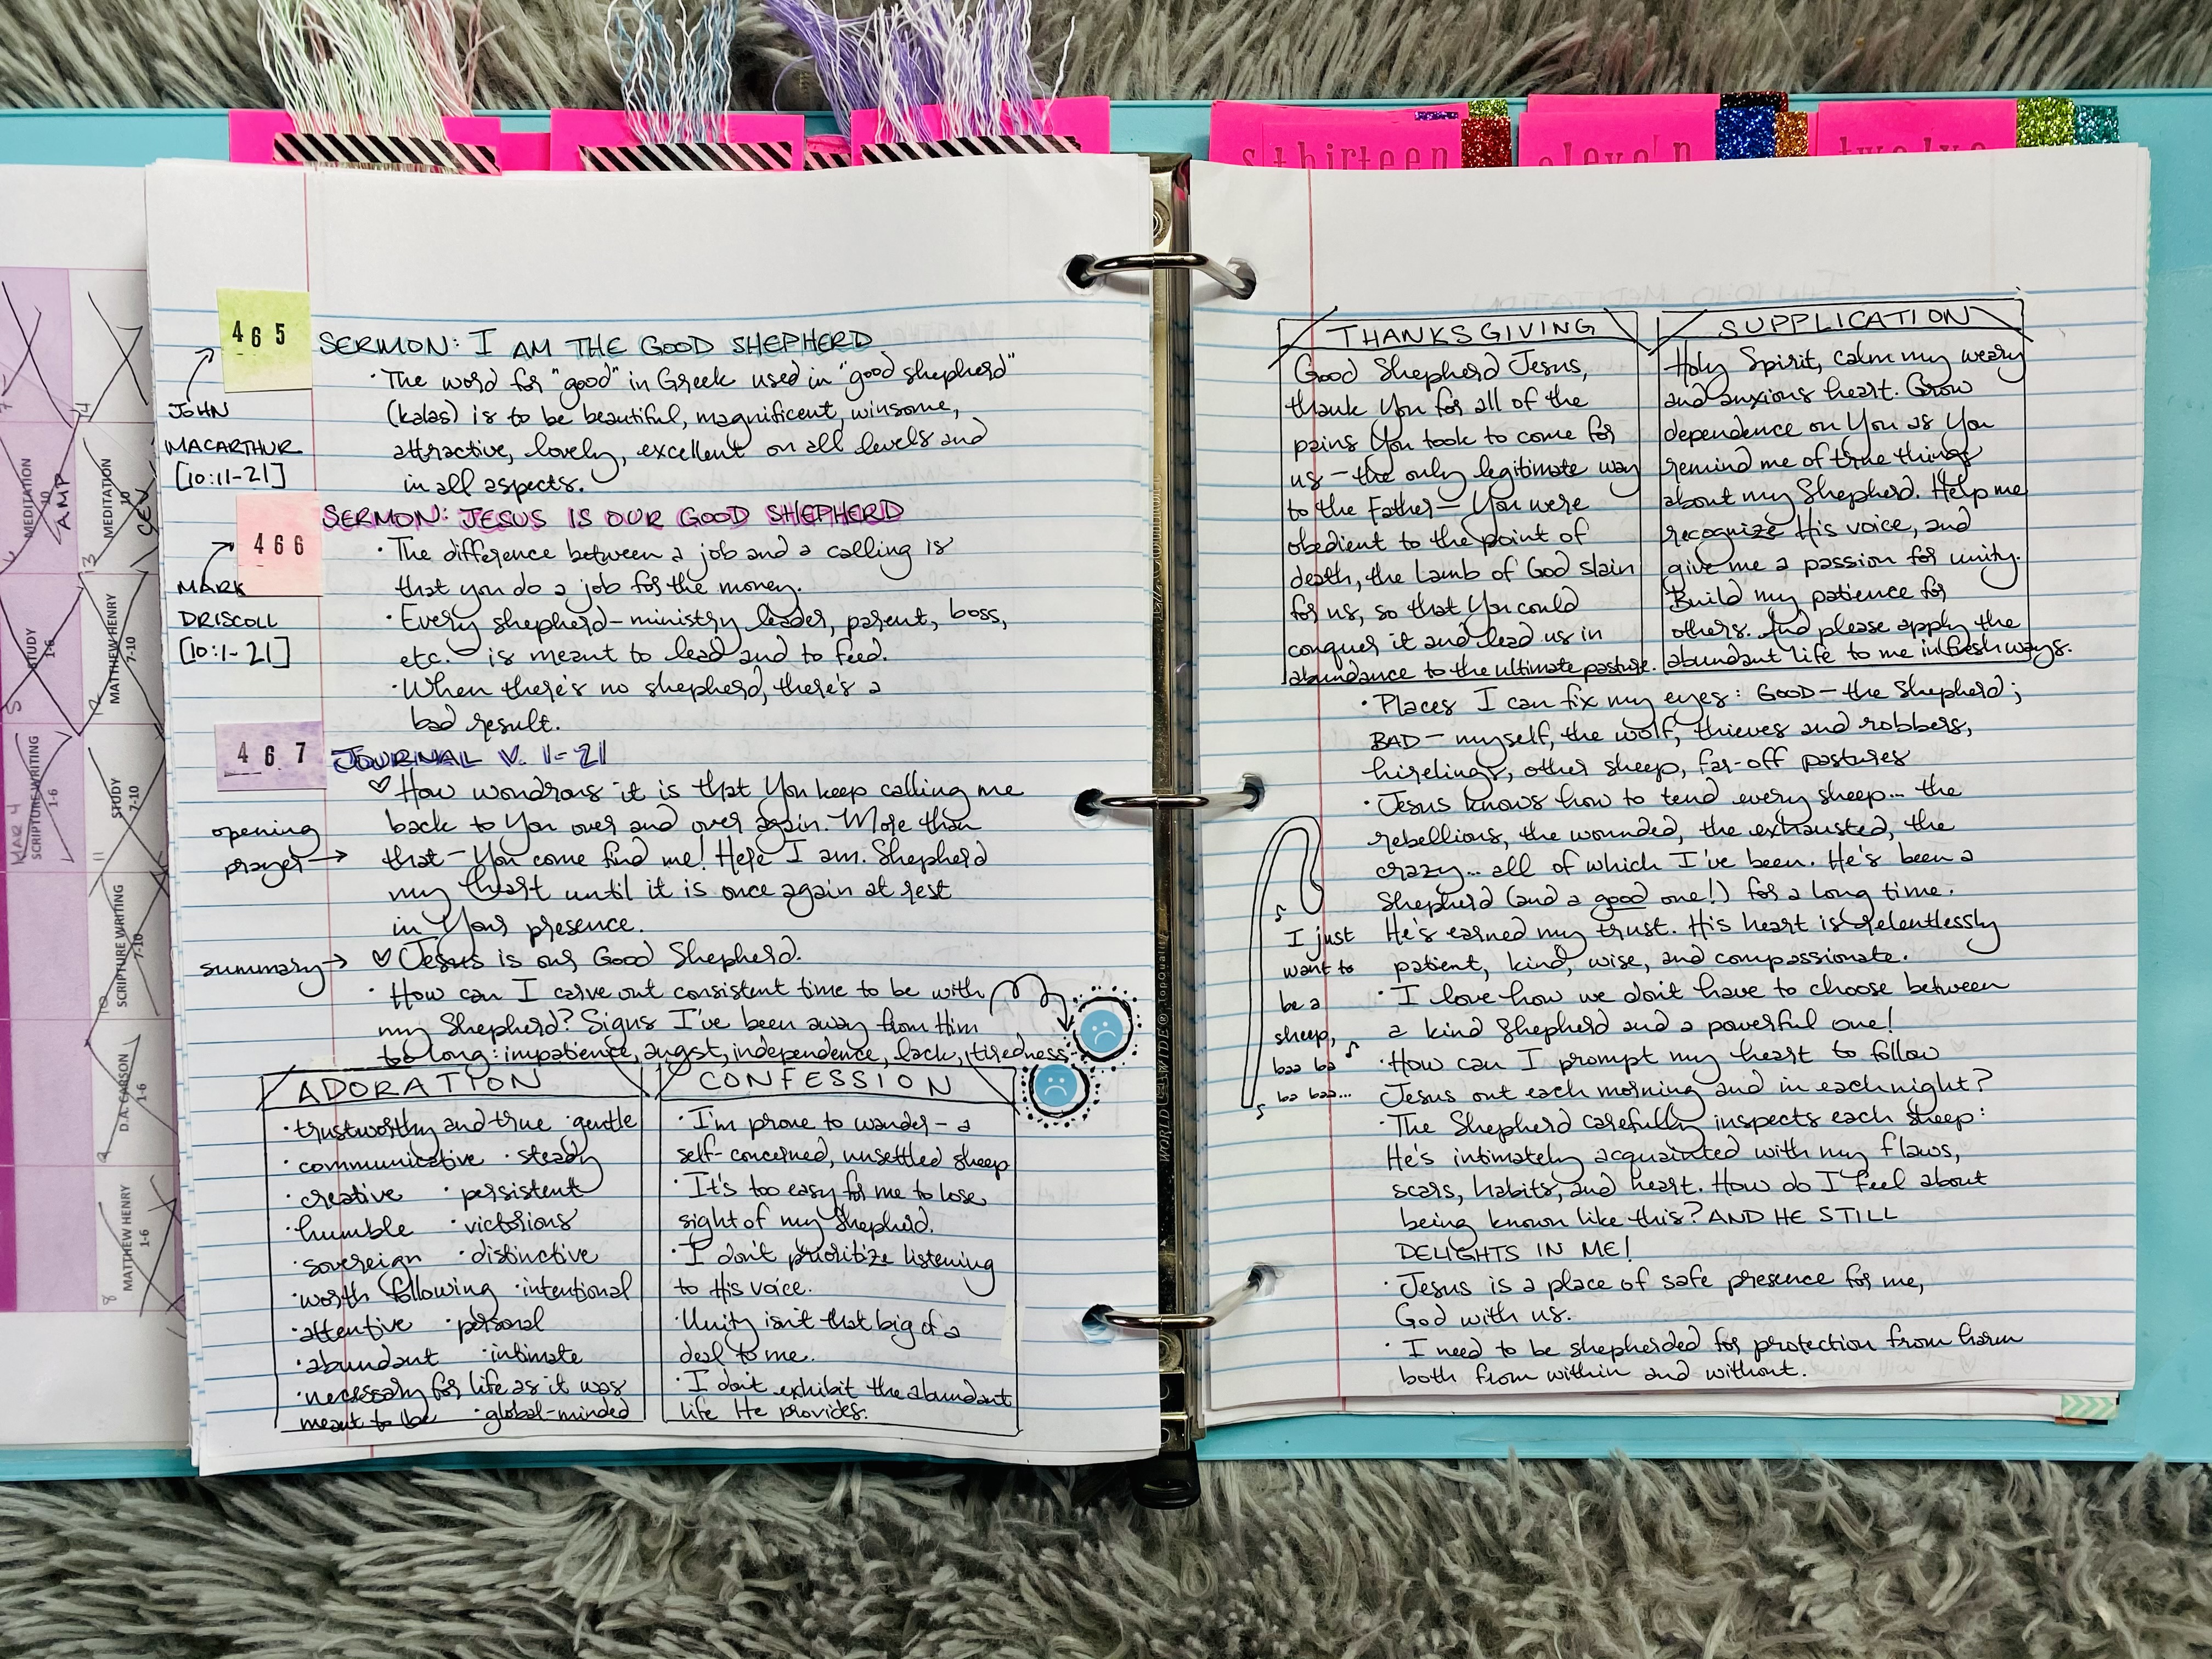 thirteen
eleve'n
twelve
465
JOHN
MACARTHUR
[10:11-21]
SERMON: I AM THE GOOD SHEPHERD
·The word for "good" in Greek used in "good shepherd"
(kalas) is to be beautiful, magnificent, winsome,
attractive, lovely, excellent on all levels and
in all aspects.
466
MARK
DRISCOLL
[10:1-21]
SERMON: JESUS IS OUR GOOD SHEPHERD
·The difference between a job and a calling is
that you do a job for the money.
·Every shepherd—ministry leader, parent, boss,
etc.— is meant to lead and to feed.
·When there's no shepherd, there's a
bad result.
467
JOURNAL V. 1-21
opening
prayer→
♡ How wondrous it is that You keep calling me
back to You over and over again. More than
that—You come find me! Here I am. Shepherd
my heart until it is once again at rest
in Your presence.
summary→
♡ Jesus is our Good Shepherd.
·How can I carve out consistent time to be with
my Shepherd? Signs I've been away from Him
too long: impatience, angst, independence, lack, tiredness
ADORATION
·trustworthy and true ·gentle
·communicative ·steady
·creative ·persistent
·humble ·victorious
·sovereign ·distinctive
·worth following ·intentional
·attentive ·personal
·abundant ·intimate
·necessary for life as it was
meant to be ·global-minded
CONFESSION
·I'm prone to wander— a
self-concerned, unsettled sheep
·It's too easy for me to lose
sight of my Shepherd.
·I don't prioritize listening
to His voice.
·Unity isn't that big of a
deal to me.
·I don't exhibit the abundant
life He provides.
THANKSGIVING
Good Shepherd Jesus,
thank You for all of the
pains You took to come for
us—the only legitimate way
to the Father— You were
obedient to the point of
death, the Lamb of God slain
for us, so that You could
conquer it and lead us in
abundance to the ultimate pasture.
SUPPLICATION
Holy Spirit, calm my weary
and anxious heart. Grow
dependence on You as You
remind me of true things
about my Shepherd. Help me
recognize His voice, and
give me a passion for unity.
Build my patience for
others. And please apply the
abundant life to me in fresh ways.
·Places I can fix my eyes: GOOD—the Shepherd;
BAD— myself, the wolf, thieves and robbers,
hirelings, other sheep, far-off pastures
·Jesus knows how to tend every sheep... the
rebellious, the wounded, the exhausted, the
crazy... all of which I've been. He's been a
Shepherd (and a good one!) for a long time.
He's earned my trust. His heart is relentlessly
patient, kind, wise, and compassionate.
♪
I just
want to
be a
sheep,
baa ba ♪
♪ ba baa...
·I love how we don't have to choose between
a kind Shepherd and a powerful one!
·How can I prompt my heart to follow
Jesus out each morning and in each night?
·The Shepherd carefully inspects each sheep:
He's intimately acquainted with my flaws,
scars, habits, and heart. How do I feel about
being known like this? AND HE STILL
DELIGHTS IN ME!
·Jesus is a place of safe presence for me,
God with us.
·I need to be shepherded for protection from harm
both from within and without.
MEDITATION
10
AMP
MEDITATION
10
CEV
STUDY
1-6
MATTHEW HENRY
7-10
MAR 4
SCRIPTURE WRITING
1-6
STUDY
7-10
SCRIPTURE WRITING
7-10
D.A. CARSON
1-6
MATTHEW HENRY
1-6
WORLD WIDE® TopQuality